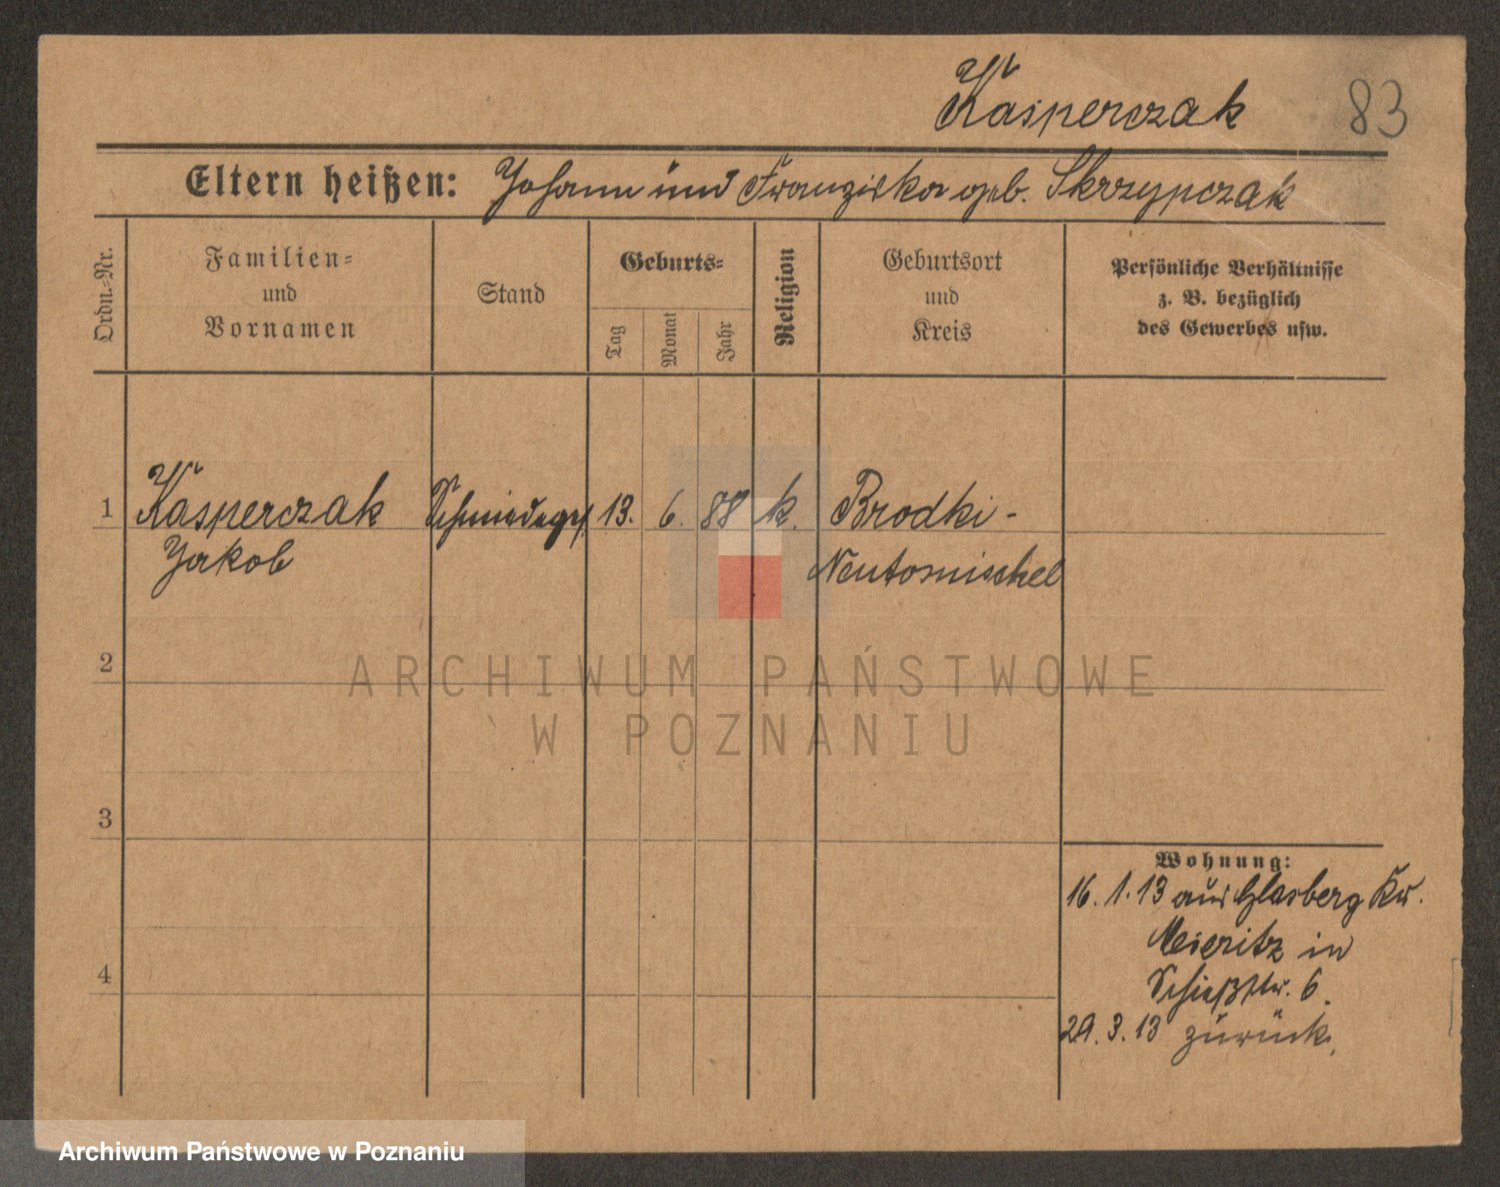 Kasperczak 83
Eltern heißen: Johann und Franziska geb. Skrzypczak
Ordn.-Nr.
Familien-
und
Vornamen
Stand
Geburts-
Tag
Monat
Jahr
Religion
Geburtsort
und
Kreis
Persönliche Verhältnisse
z. B. bezüglich
des Gewerbes usw.
1 Kasperczak Schmiedeges. 13. 6. 88 k. Brodki -
Jakob Neutomischel
2
ARCHIWUM PAŃSTWOWE
W POZNANIU
3
Wohnung:
16. 1. 13 aus Glasberg Kr.
Meseritz in
4
Schießstr. 6.
29. 3. 13 zurück.
Archiwum Państwowe w Poznaniu